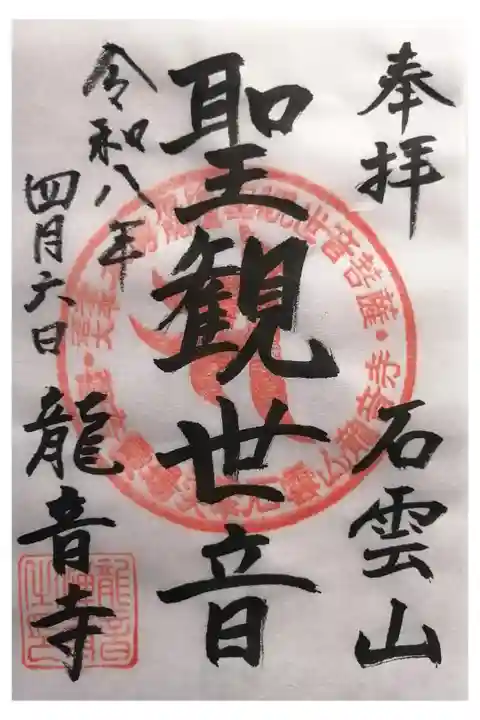 奉拝
石雲山
聖観世音
令和八年
四月六日
龍音寺